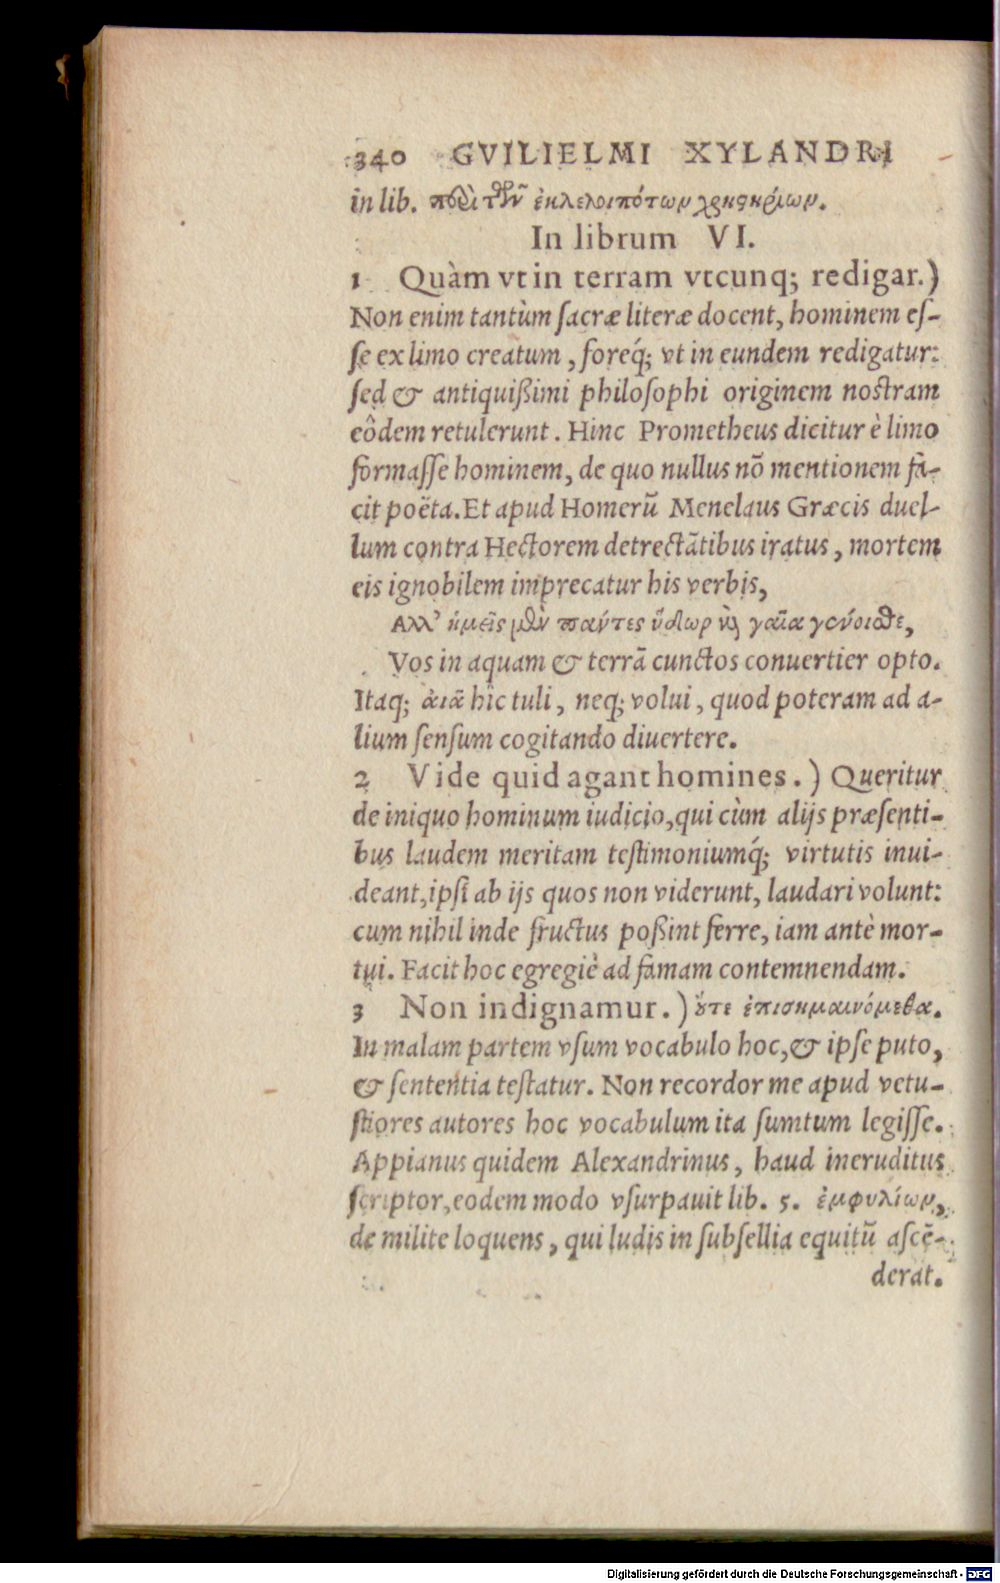 340 GVILIELMI XYLANDRI
in lib. περὶ τῶν ἐκλελοιπότων χρηστηρίων.
In librum VI.
1 Quàm vt in terram vtcunq; redigar.)
Non enim tantùm sacræ literæ docent, hominem es-
se ex limo creatum, foreq́; vt in eundem redigatur:
sed & antiquißimi philosophi originem nostram
eôdem retulerunt. Hinc Prometheus dicitur è limo
formasse hominem, de quo nullus nõ mentionem fa-
cit poëta. Et apud Homerũ Menelaus Græcis duel-
lum contra Hectorem detrectãtibus iratus, mortem
eis ignobilem imprecatur his verbis,
Αλλ' ὑμεῖς μὲν πάντες ὕδωρ καὶ γαῖα γένοισθε,
Vos in aquam & terrã cunctos conuertier opto.
Itaq; hîc tuli, neq; volui, quod poteram ad a-
lium sensum cogitando diuertere.
2 Vide quid agant homines.) Queritur
de iniquo hominum iudicio, qui cùm alijs præsenti-
bus laudem meritam testimoniumq́; virtutis inui-
deant, ipsi ab ijs quos non viderunt, laudari volunt:
cum nihil inde fructus poßint ferre, iam antè mor-
tui. Facit hoc egregiè ad famam contemnendam.
3 Non indignamur.) ὄτε ἐπισημαινόμεθα.
In malam partem vsum vocabulo hoc, & ipse puto,
& sententia testatur. Non recordor me apud vetu-
stiores autores hoc vocabulum ita sumtum legisse.
Appianus quidem Alexandrinus, haud ineruditus
scriptor, eodem modo vsurpauit lib. 5. ἐμφυλίων,
de milite loquens, qui ludis in subsellia equitũ ascē-
derat.
Digitalisierung gefördert durch die Deutsche Forschungsgemeinschaft - DFG